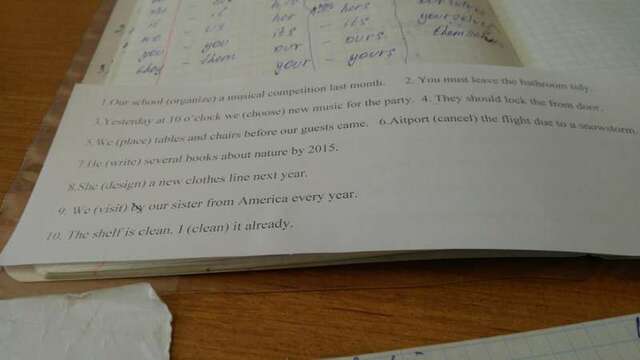 her hers
us its its
you our ours yourselves
them your yours themselves
they
1.Our school (organize) a musical competition last month. 2. You must leave the bathroom tidy.
3.Yesterday at 16 o'clock we (choose) new music for the party. 4. They should lock the front door.
5.We (place) tables and chairs before our guests came. 6.Aitport (cancel) the flight due to a snowstorm.
7.He (write) several books about nature by 2015.
8.She (design) a new clothes line next year.
9. We (visit) by our sister from America every year.
10. The shelf is clean. I (clean) it already.